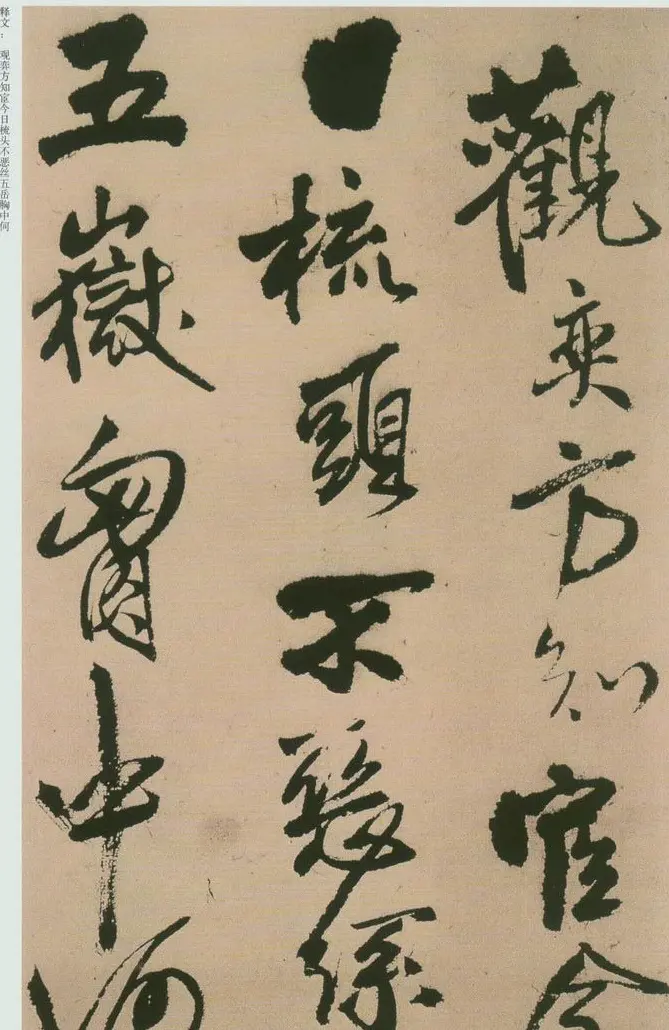 释文： 观弈方知宦今日梳头不恶丝五岳胸中何
觀奕方知宦今
日梳頭不
五嶽胷中何